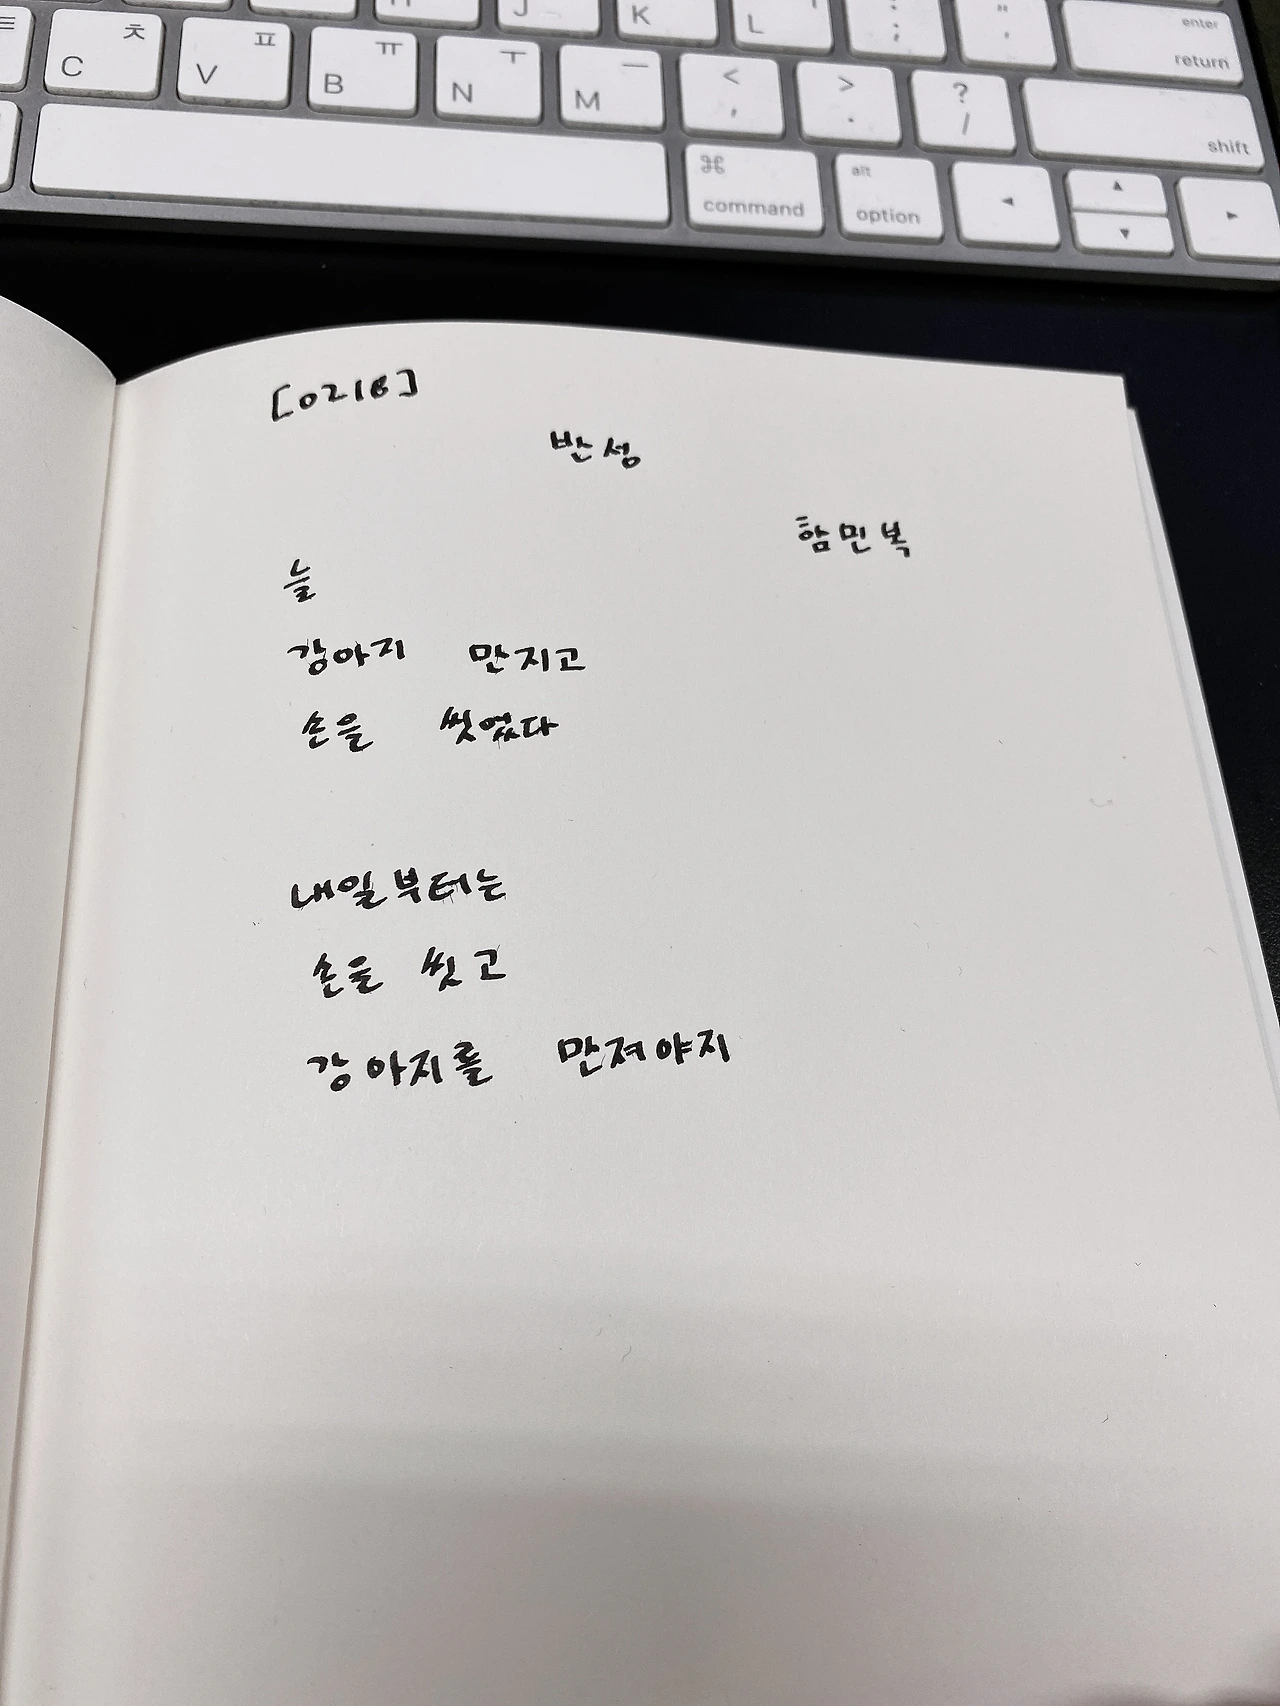 ㅊ ㅍ ㅠ ㅜ ㅡ < > ?
J K L ; " ' enter return
C V B N M , . / shift
⌘ command alt option ◂ ▴ ▾ ▸
[0218]
반성
함민복
늘
강아지 만지고
손을 씻었다
내일부터는
손을 씻고
강아지를 만져야지